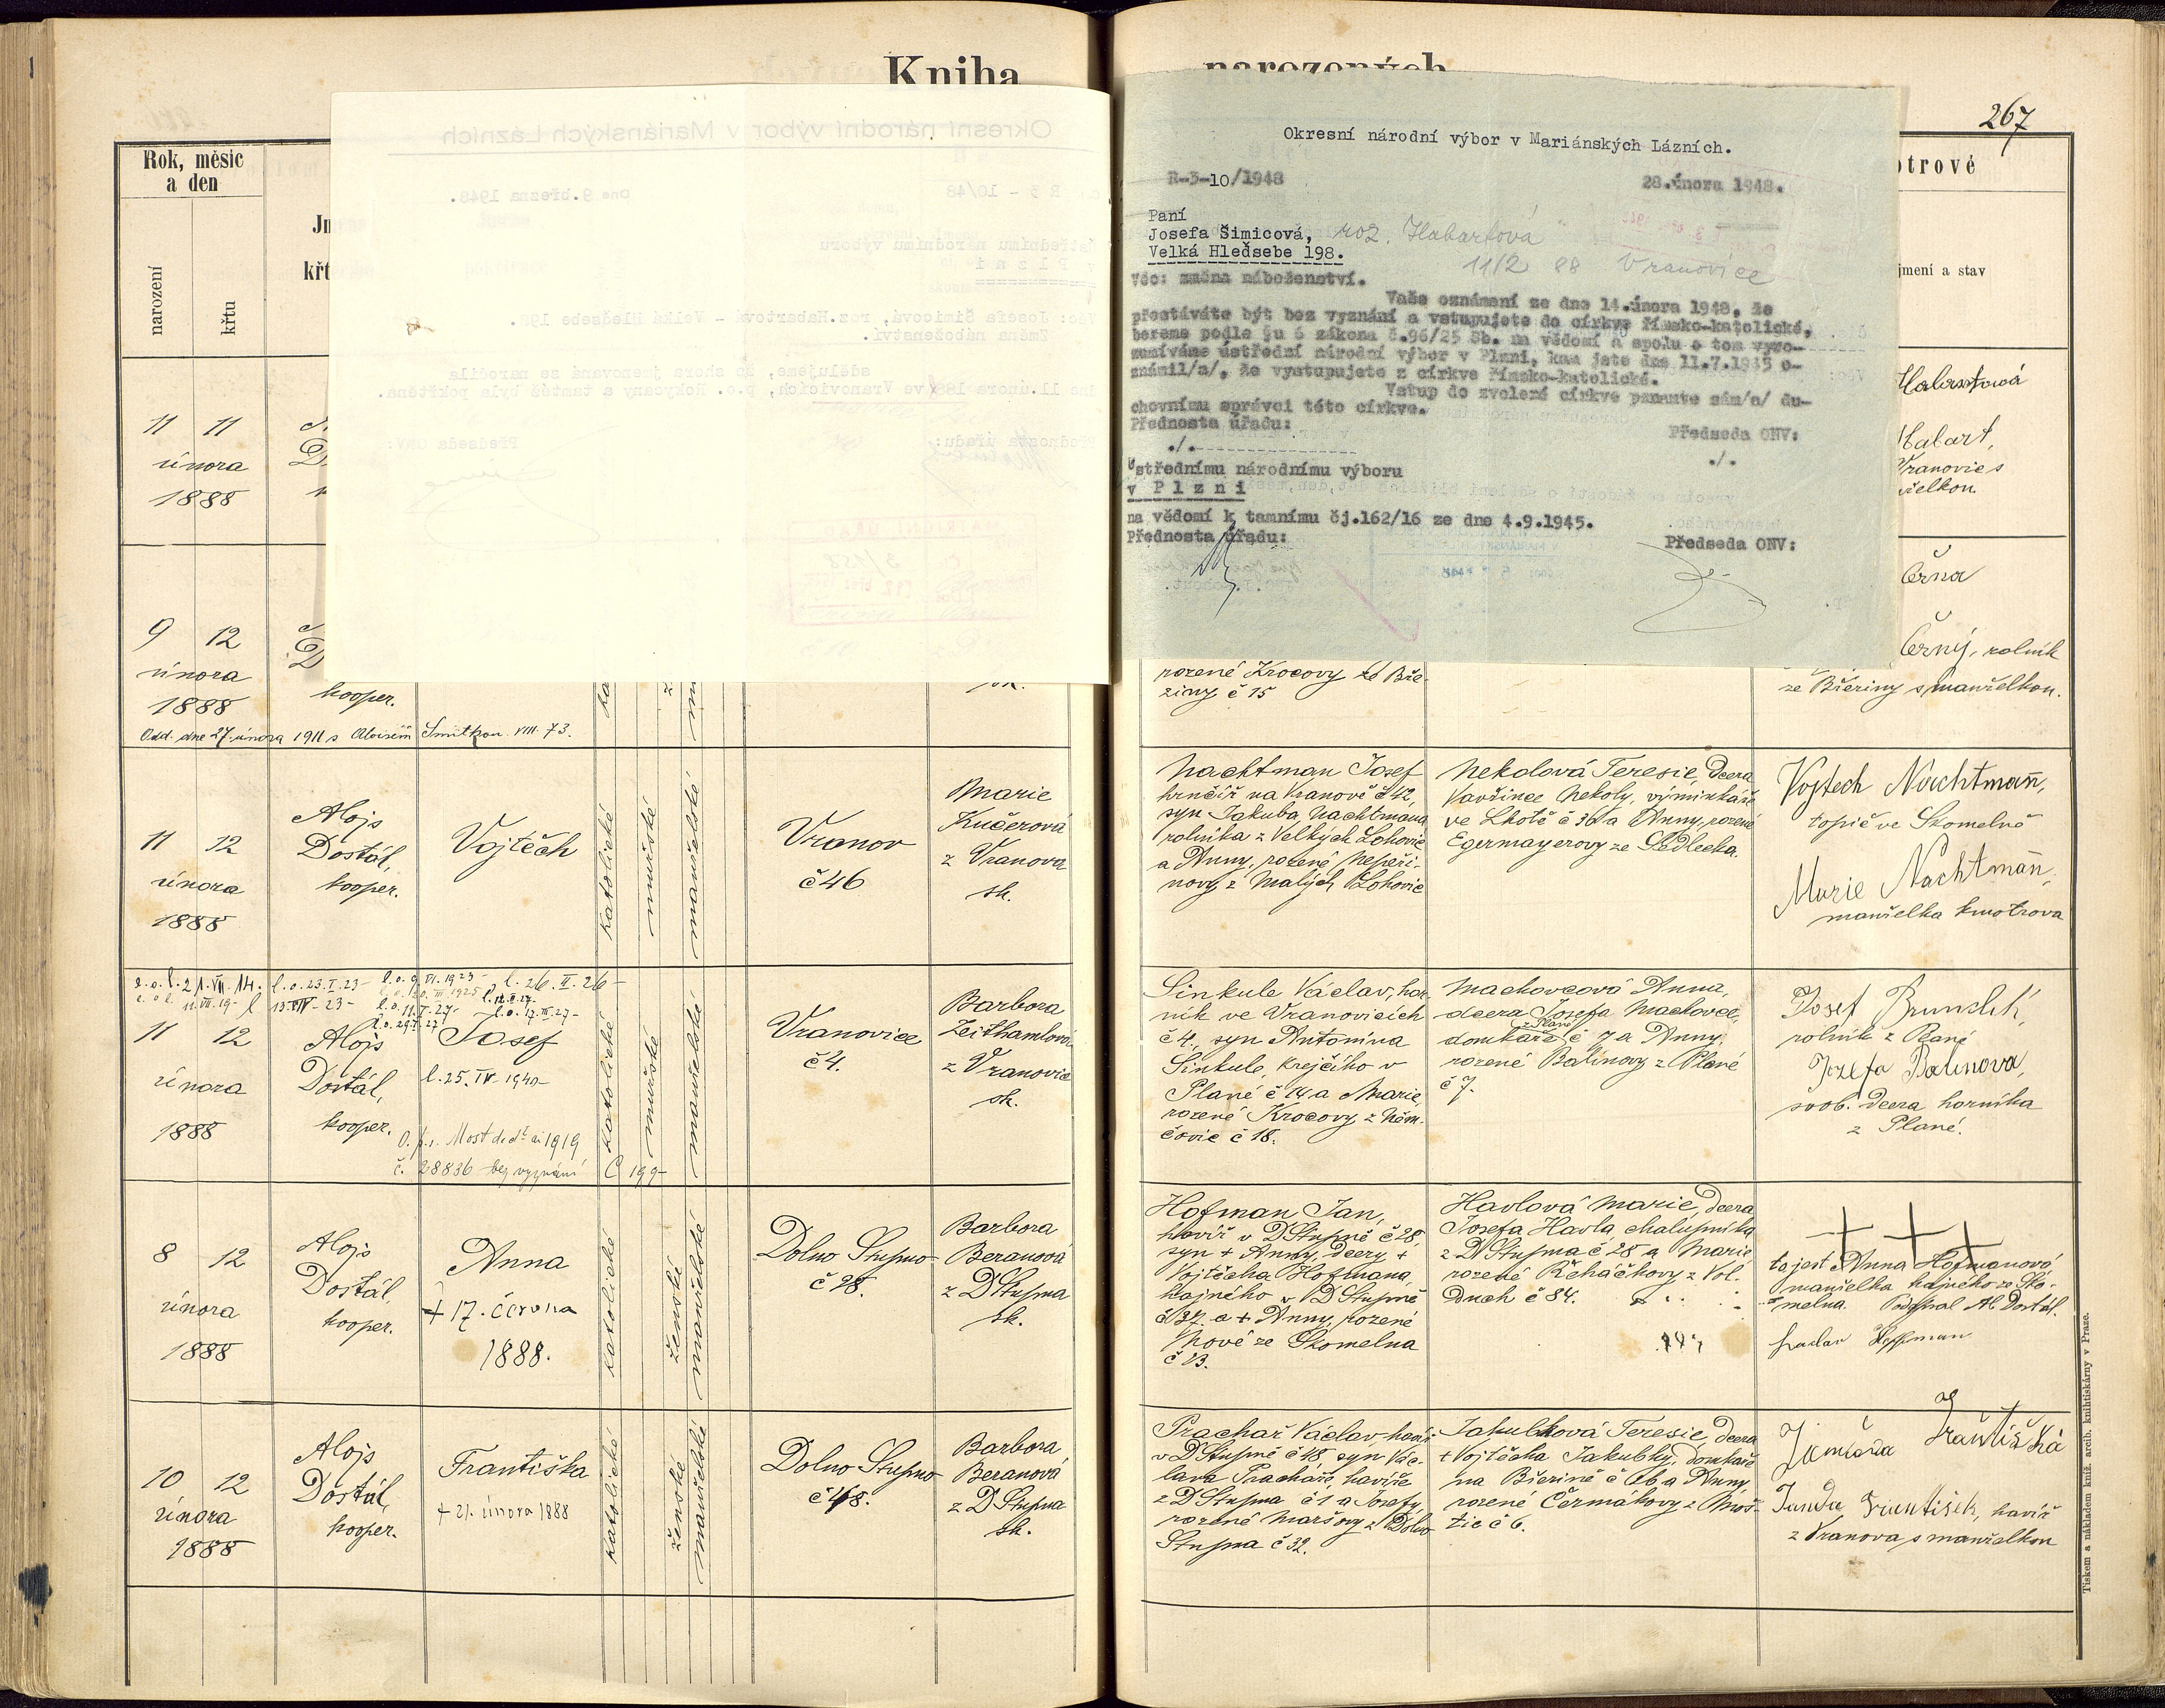 Kniha
narozených
267
Rok, měsíc
a den
narození
křtu
Jm
křt
otrové
jmení a stav
Okresní národní výbor v Mariánských Lázních.
R-3-10/1948
28.února 1948.
Paní
Josefa Šimicová, roz. Habartová
Velká Hleďsebe 198.
11/2 88 Vranovice
Věc: změna náboženství.
Vaše oznámení ze dne 14.února 1948, že
přestáváte být bez vyznání a vstupujete do církve římsko-katolické,
bereme podle §u 6 zákona č.96/25 Sb. na vědomí a spolu o tom vyro-
zumíváme ústřední národní výbor v Plzni, kam jste dne 11.7.1945 o-
známil/a/, že vystupujete z církve římsko-katolické.
Vstup do zvolené církve pramte sám/a/ du-
chovnímu správci této církve.
Přednosta úřadu:
Předseda ONV:
./.
./.
Ústřednímu národnímu výboru
v Plzni
na vědomí k tamnímu čj.162/16 ze dne 4.9.1945.
Přednosta úřadu:
Předseda ONV:
11 11
února
1888
Habartová
Habart,
Vranovic s
želkou
9 12
února
1888
kooper.
Odd. dne 27. února 1911 s Aloisem Smitkou VIII. 73.
rozené Krocovy ze Bře-
ziny č 15
Černa
Černý, rolník
ze Březiny s manželkou.
11 12
února
1888
Alojs
Dostál,
kooper.
Vojtěch
katolické
mužské
manželské
Vranov
č 46
Marie
Kučerová
z Vranova
zk.
Nachtman Josef
hrnčíř na Vranově č 42,
syn Jakuba Nachtmana
rolníka z Velkých Lohovic
a Anny, rozené Nepeři-
novy z Malých Lohovic
Nekolová Teresie, dcera
Vavřince Nekoly, výminkáře
ve Lhotě č 36 a Anny, rozené
Egermayerovy ze Sedlecka.
Vojtech Nachtmann,
topič ve Skomelně
Marie Nachtmann,
manželka kmotrova
l. o. 23. I. 23 -
l. 26. II. 26 -
11 12
února
1888
Alojs
Dostál,
kooper.
Josef
l. 25. IV. 1940 -
Most
1919
č. 28836 bez vyznání
katolické
mužské
manželské
Vranovice
č 4.
Barbora
Zeithamlová
z Vranovic
zk.
Sinkule Václav, hor-
ník ve Vranovicích
č 4., syn Antonína
Sinkule, krejčího v
Plané č 14 a Marie,
rozené Krocovy z Něm-
čovic č 18.
Machovcová Anna,
dcera Josefa Machovce,
z Plané
domkáře č 7 a Anny,
rozené Balínovy z Plané
č 7.
Josef
rolník z Plané
Jozefa Balinova,
svob. dcera horníka
z Plané.
8 12
února
1888
Alojs
Dostál,
kooper.
Anna
+ 17. června
1888.
katolické
ženské
manželské
Dolno Stupno
č 28.
Barbora
Beranová
z D Stupna
zk.
Hofman Jan,
havíř v D Stupně č 28,
syn + Anny, dcery +
Vojtěcha Hofmana,
hajného v D Stupně
č 37. a + Anny, rozené
ze Skomelna
č 13.
Havlová Marie, dcera
Josefa Havla, chalupníka
z D Stupna č 28 a Marie
rozené Řeháčkovy z Vol-
duch č 84.
+ + +
to jest Anna Hofmanová,
manželka hajného ze Sko-
melna. Podepsal Al. Dostál.
10 12
února
1888
Alojs
Dostál,
kooper.
Františka
+ 21. února 1888
katolické
ženské
manželské
Dolno Stupno
č 48.
Barbora
Beranová
z D Stupna
zk.
Prachař Václav, havíř
v D Stupně č 48, syn Vác-
lava Prachaře, havíře
z D Stupna č 1 a Josefy,
rozené Maršovy z Dolno
Stupna č 32.
Jakubková Teresie, dcera
+ Vojtěcha Jakubky, domkáře
na Březině č 66 a Anny,
rozené Čermákovy z Moš-
tic č 6.
Františka
Janda František, havíř
z Vranova s manželkou
Tiskem a nákladem kníž. arcib. knihtiskárny v Praze.